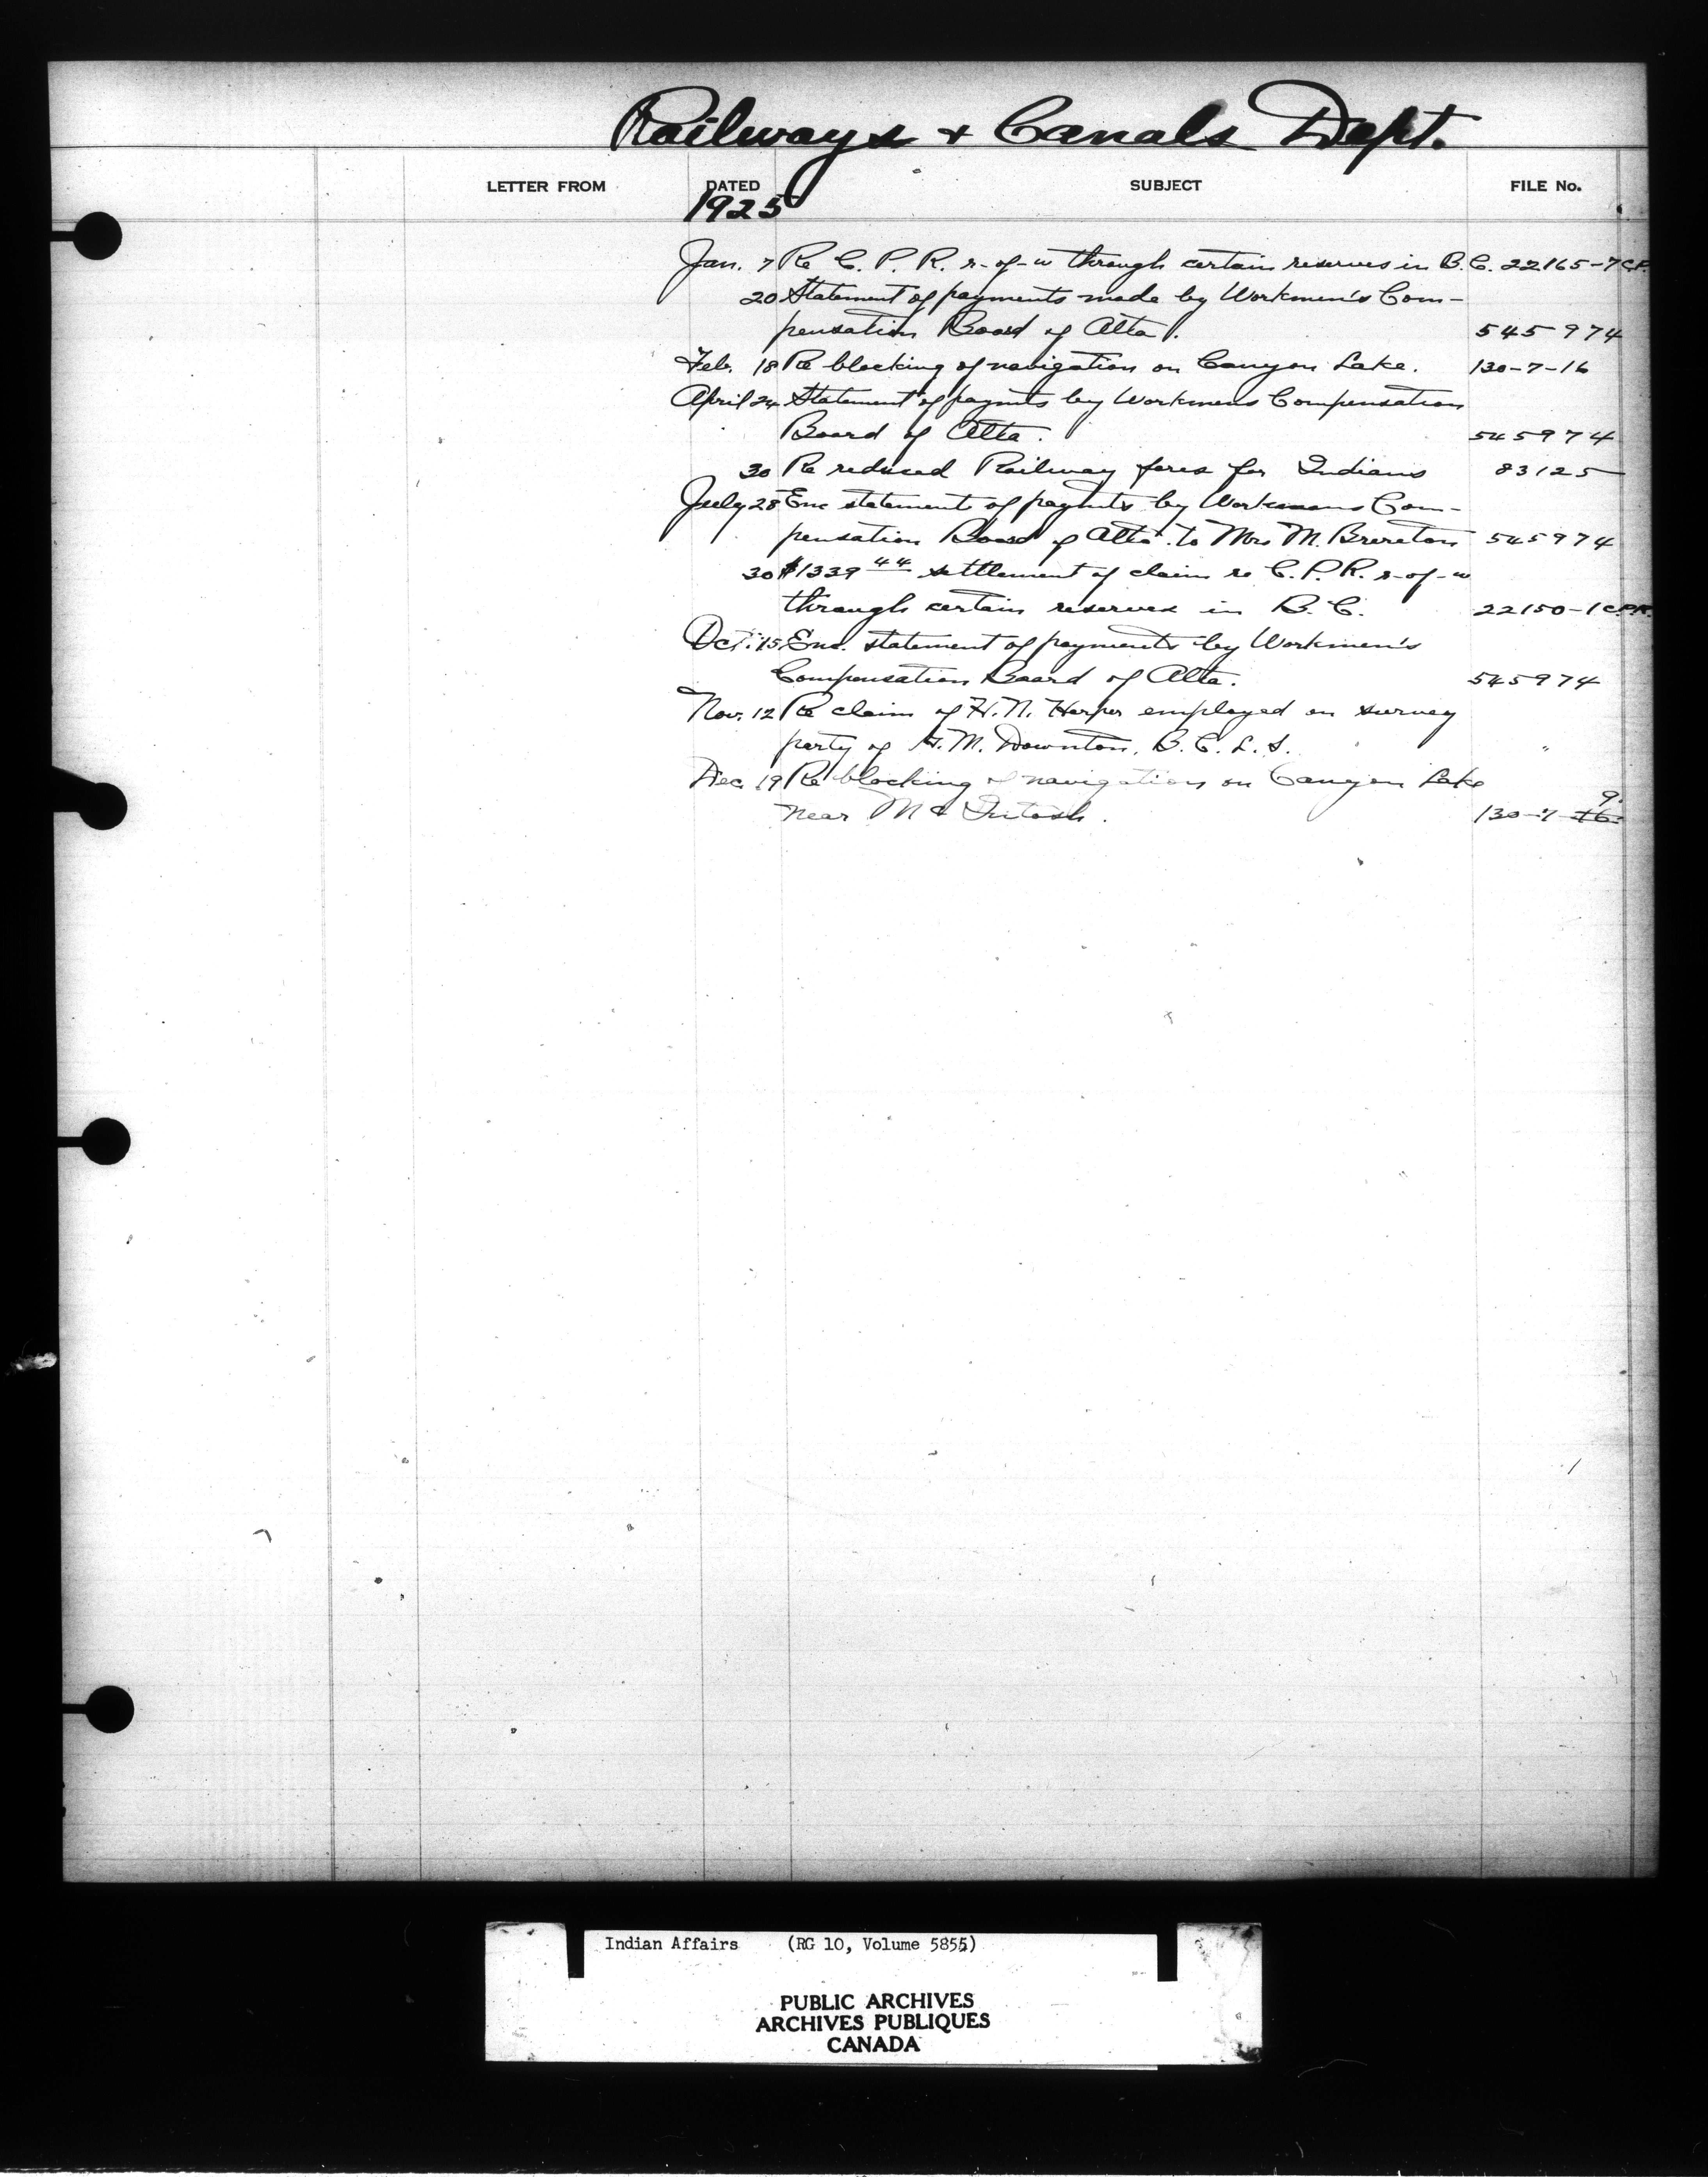 Railways & Canals Dept.
LETTER FROM DATED SUBJECT FILE No.
1925
Jan. 7 Re C. P. R. r-of-w through certain reserves in B.C. 22165-7 C.P.
20 Statement of payments made by Workmen's Com-
pensation Board of Alta. 545974
Feb. 18 Re blocking of navigation on Canyon Lake. 130-7-16
April 24 Statement of paymts by Workmens Compensation
Board of Alta. 545974
30 Re reduced Railway fares for Indians 83125
July 28 Enc statements of paymts by Workmans Com-
pensation Board of Alta. to Mrs M. Brereton 545974
30 $1339 44 settlement of claim re C.P.R. r-of-w
through certain reserves in B.C. 22150-1 C.P.R.
Oct. 15 Enc. statement of payments by Workmen's
Compensation Board of Alta. 545974
Nov. 12 Re claim of H. N. Harper employed on survey
party of G. M. Downton, B. C. L. S. "
Dec. 19 Re blocking of navigation on Canyon Lake
9.
near Mc Intosh. 130-7-16
Indian Affairs (RG 10, Volume 5855)
PUBLIC ARCHIVES
ARCHIVES PUBLIQUES
CANADA